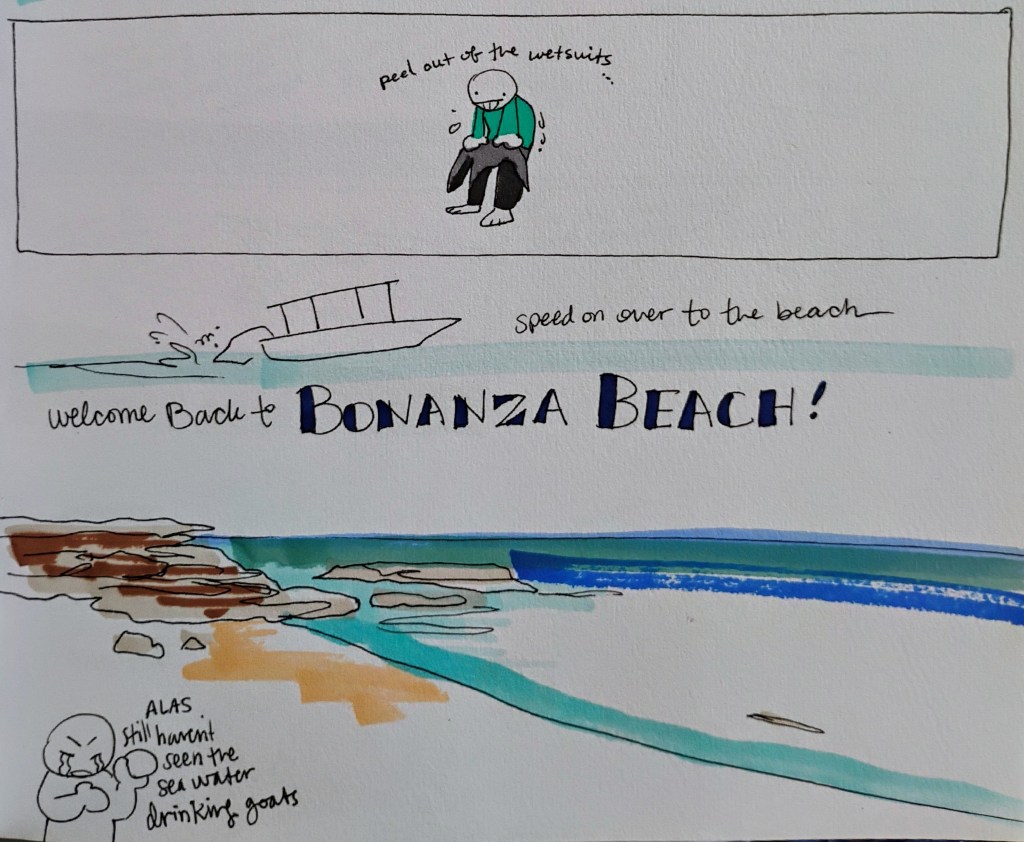 peel out of the wetsuits
speed on over to the beach
welcome Back to BONANZA BEACH!
ALAS
still haven't
seen the
sea water
drinking goats